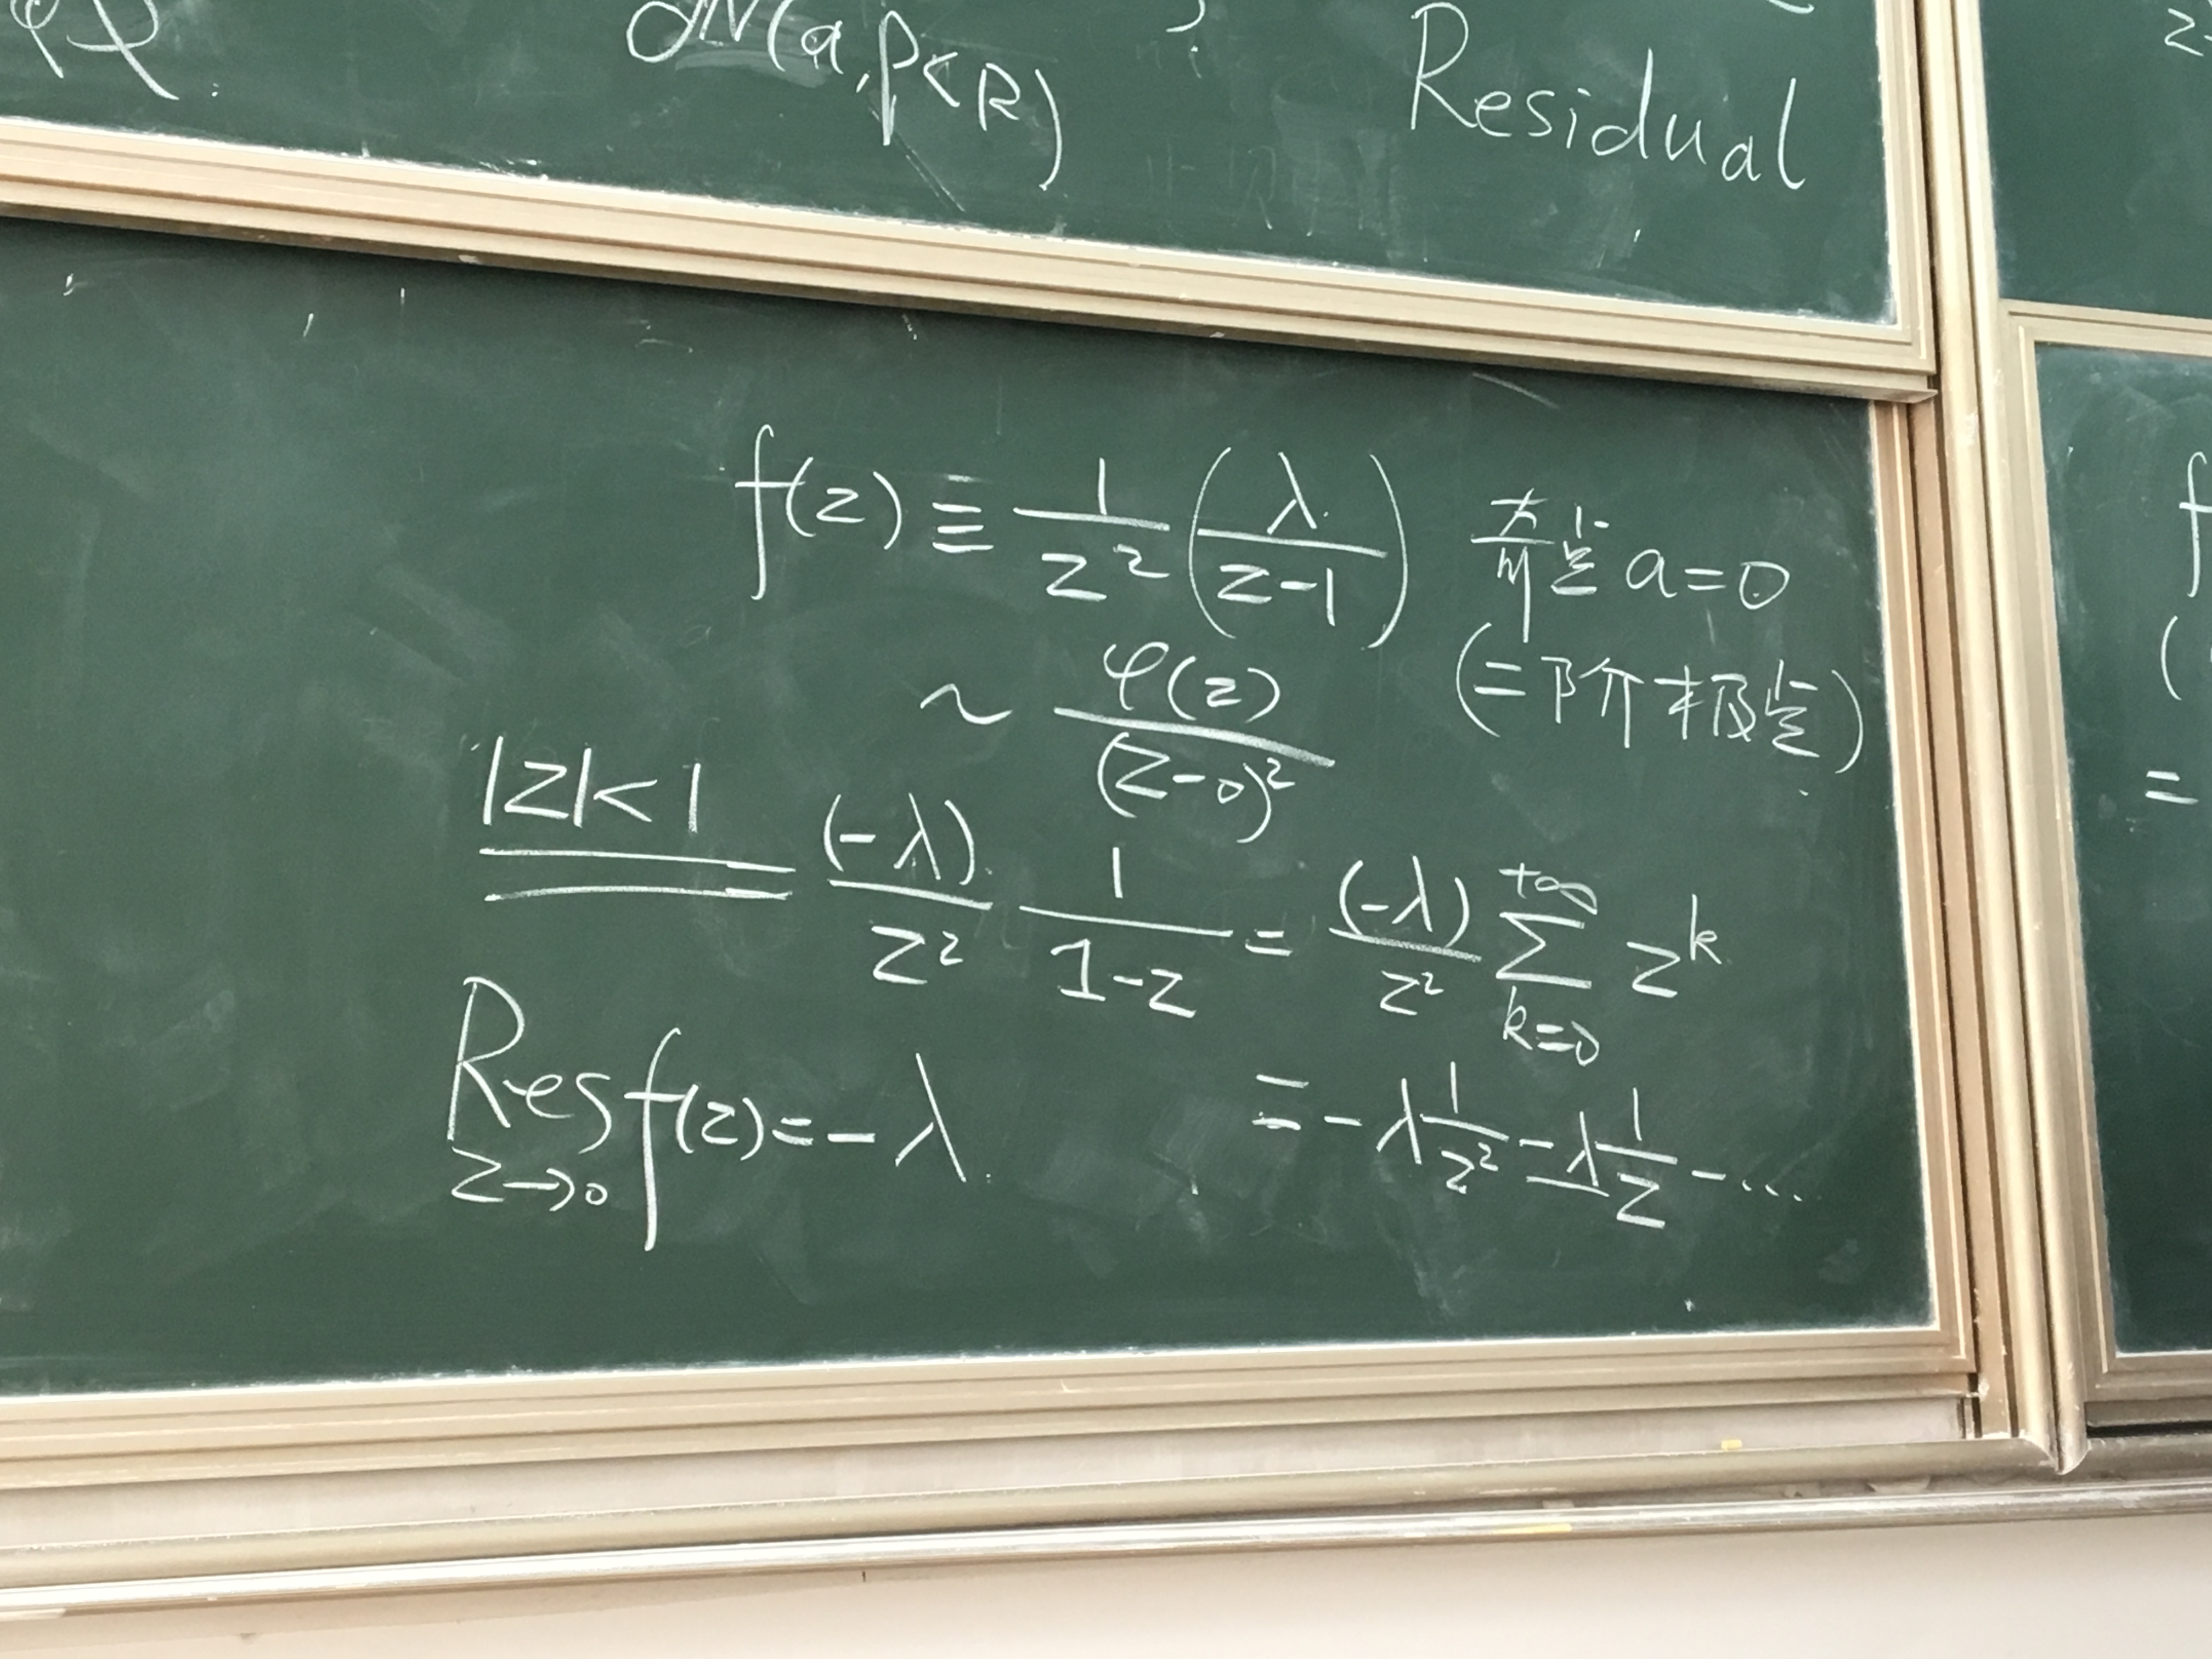 ∂N(a,ρ<R)
Residual
f(z) ≡ 1/z² (λ/(z-1)) 奇点 a=0
~ φ(z)/(z-0)² (二阶极点)
|z|<1
= (-λ)/z² 1/(1-z) = (-λ)/z² ∑_{k=0}^{+∞} z^k
Res_{z→0} f(z) = -λ = -λ 1/z² - λ 1/z - ...